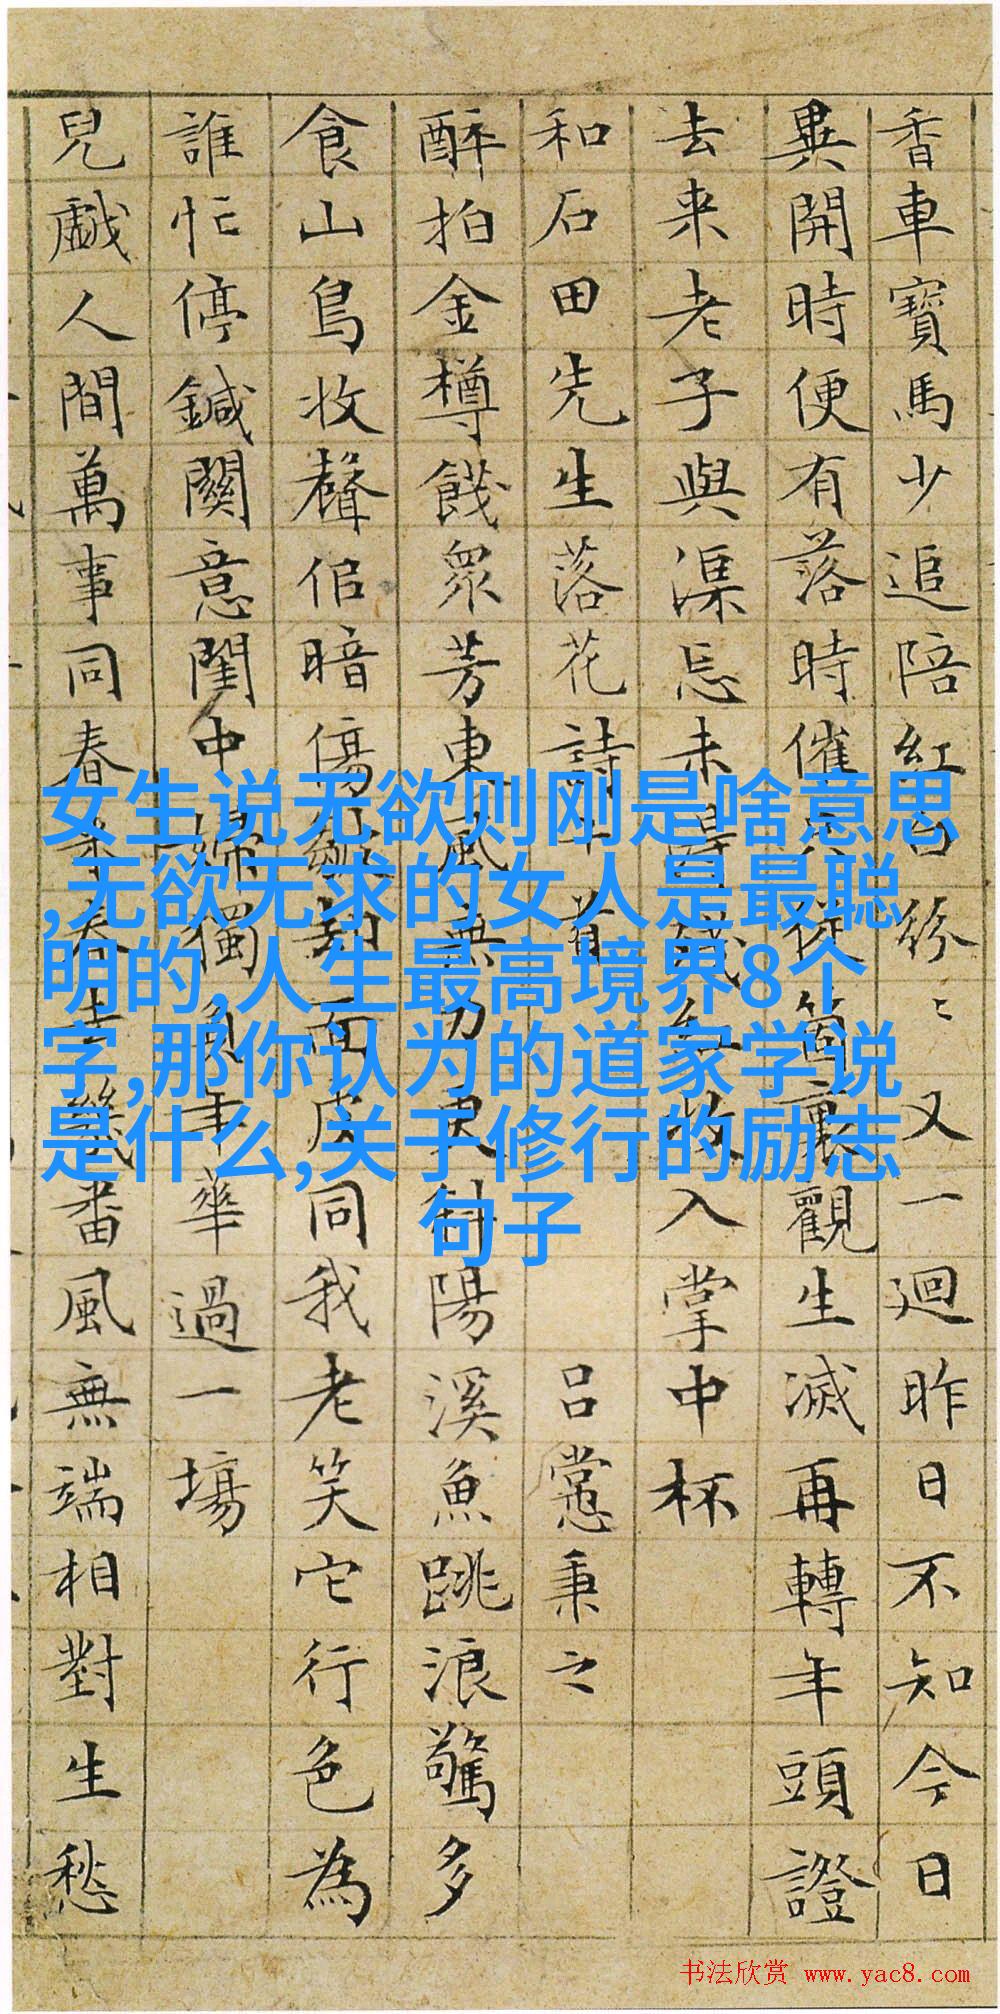 香車寶馬少追陪紅白紛〻又一迴昨日不知今日
異開時便有落時催只從箇裏觀生滅再轉年頭證
去来老子與渠未得殘紅收入掌中杯
和石田先生落花詩十首 呂㦂秉之
醉拍金樽餞眾芳東風無力更斜陽溪魚跳浪驚多
食山鳥收聲倍暗傷却面皮同我老笑它行色為
誰忙停鍼關意閨中婦獨負年華過一場
兒戲人間萬事同春來春去幾番風無端相對生愁
女生说无欲则刚是啥意思
,无欲无求的女人是最聪
明的,人生最高境界8个
字,那你认为的道家学说
是什么,关于修行的励志
句子
书法欣赏 www.yac8.com